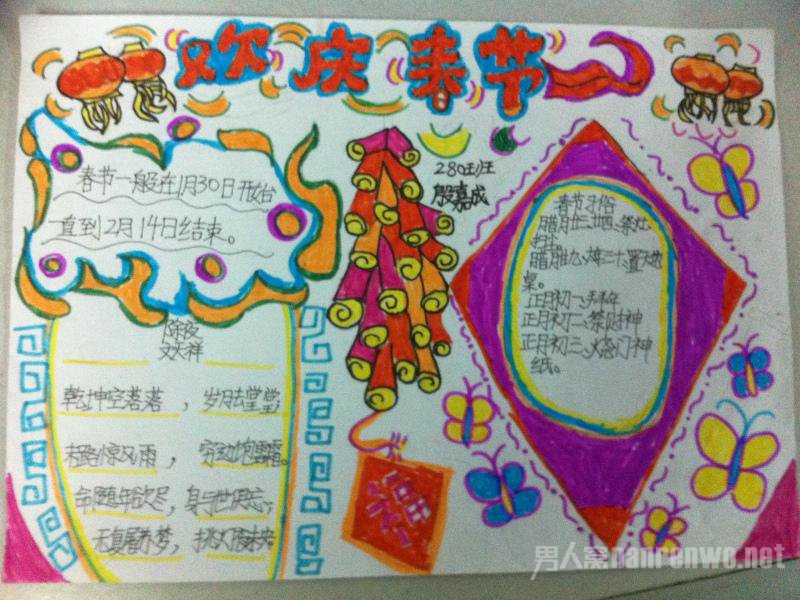 欢庆春节
280班
殷嘉成
春节一般在1月30日开始
一直到2月14日结束。
除夜
文天祥
乾坤空落落，岁月去堂堂；
末路惊风雨，穷边饱雪霜。
命随年欲尽，身与世俱忘；
无复屠苏梦，挑灯夜未央。
春节习俗
腊月廿三、廿四、祭灶
扫尘
腊月廿九、三十、置天地
桌。
正月初一、拜年
正月初二、祭财神
正月初三、烧门神
纸。
男人窝nanrenwo.net